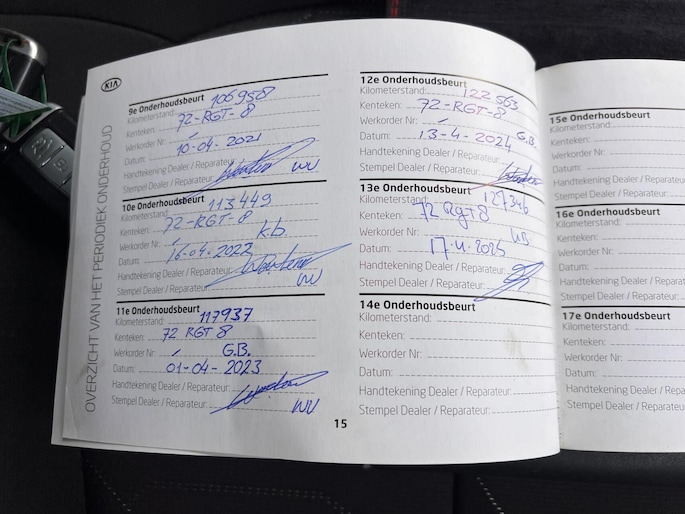 KIA
OVERZICHT VAN HET PERIODIEK ONDERHOUD
9e Onderhoudsbeurt
Kilometerstand: 106958
Kenteken: 72-RGT-8
Werkorder Nr:
Datum: 10-04-2021
Handtekening Dealer / Reparateur:
Stempel Dealer / Reparateur:
10e Onderhoudsbeurt
Kilometerstand: 113449
Kenteken: 72-RGT-8
Werkorder Nr: k.b.
Datum: 16-04-2022
Handtekening Dealer / Reparateur:
Stempel Dealer / Reparateur:
11e Onderhoudsbeurt
Kilometerstand: 117937
Kenteken: 72 RGT 8
Werkorder Nr: G.B.
Datum: 01-04-2023
Handtekening Dealer / Reparateur:
Stempel Dealer / Reparateur:
15
12e Onderhoudsbeurt
Kilometerstand: 122563
Kenteken: 72-RGT-8
Werkorder Nr: G.B.
Datum: 13-4-2024
Handtekening Dealer / Reparateur:
Stempel Dealer / Reparateur:
13e Onderhoudsbeurt
Kilometerstand: 127346
Kenteken: 72 RgT 8
Werkorder Nr:
Datum: 17.4.2025
Handtekening Dealer / Reparateur:
Stempel Dealer / Reparateur:
14e Onderhoudsbeurt
Kilometerstand:
Kenteken:
Werkorder Nr:
Datum:
Handtekening Dealer / Reparateur:
Stempel Dealer / Reparateur:
15e Onderhoudsbeurt
Kilometerstand:
Kenteken:
Werkorder Nr:
Datum:
Handtekening Dealer / Reparateur
Stempel Dealer / Reparateur:
16e Onderhoudsbeurt
Kilometerstand:
Kenteken:
Werkorder Nr:
Datum:
Handtekening Dealer / Reparateur
Stempel Dealer / Reparateur:
17e Onderhoudsbeurt
Kilometerstand:
Kenteken:
Werkorder Nr:
Datum:
Handtekening Dealer / Repara
Stempel Dealer / Reparateur